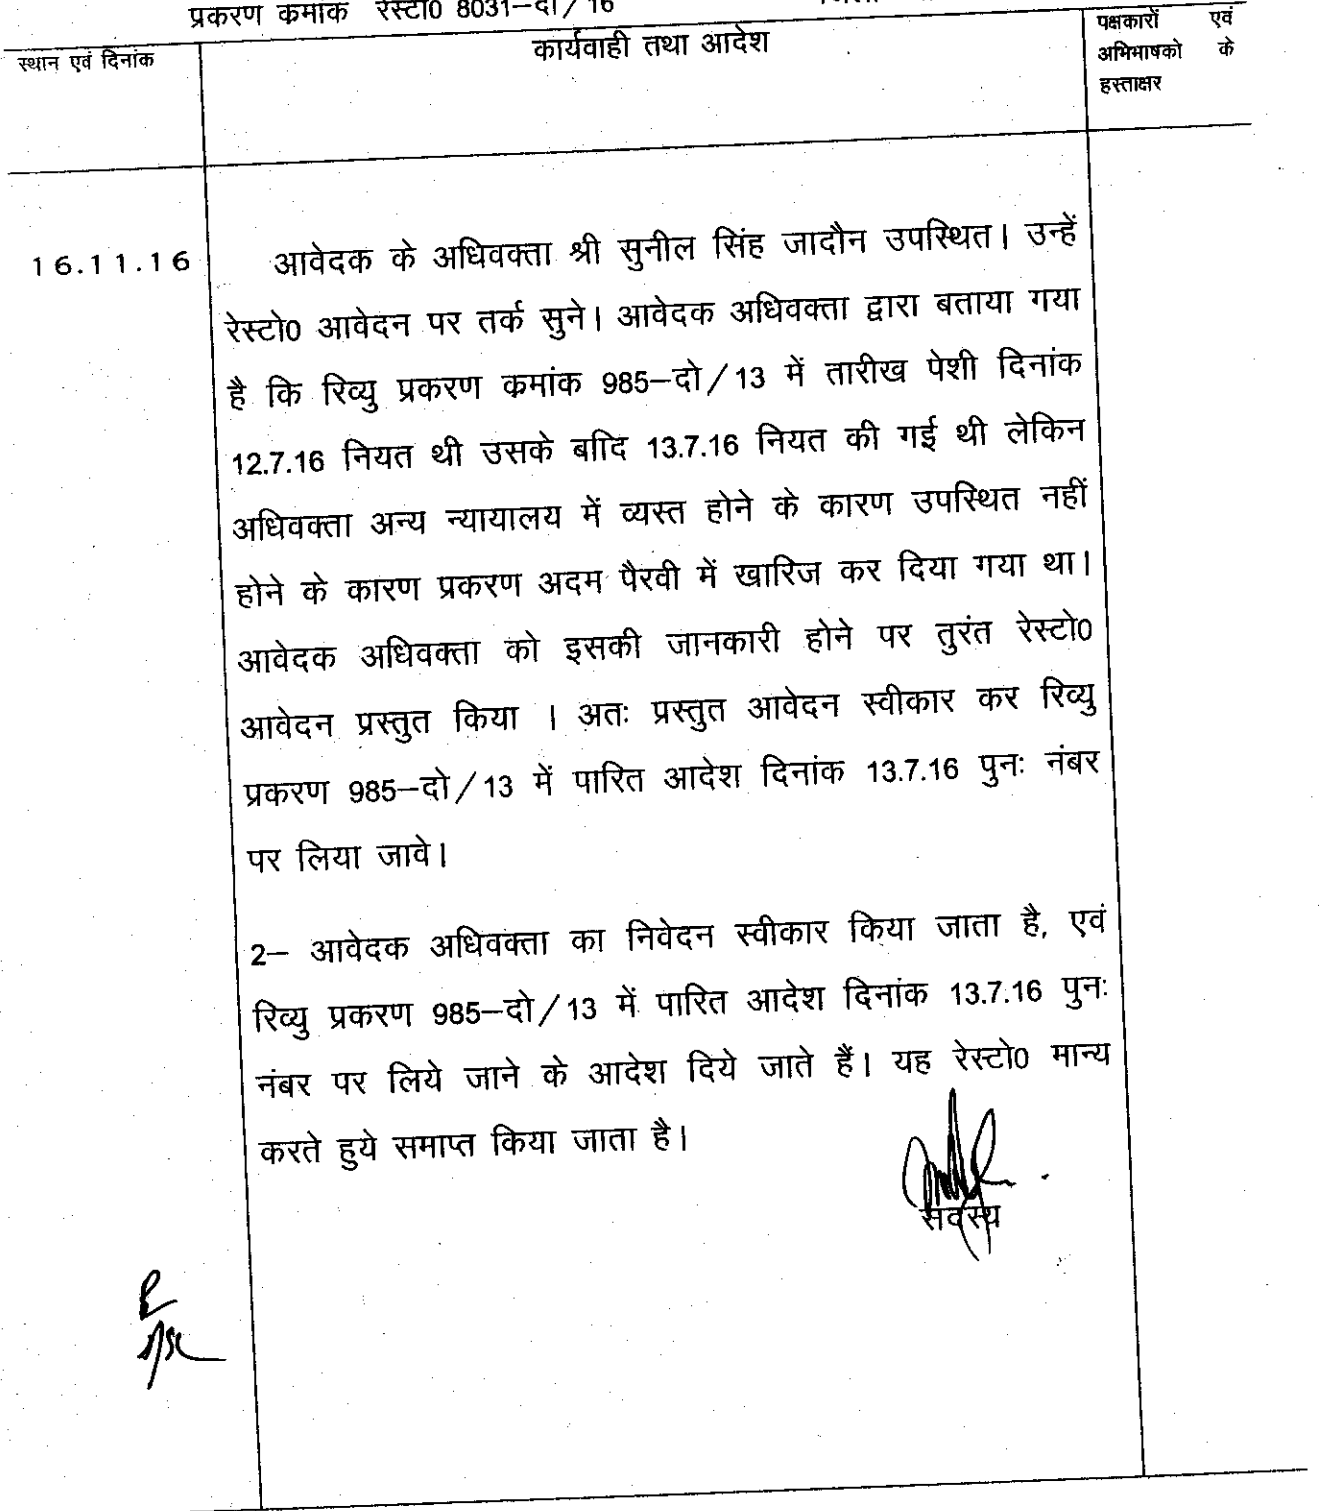 प्रकरण कमांक रेस्टो0 8031–दो/16
स्थान एवं दिनांक
कार्यवाही तथा आदेश
पक्षकारों एवं
अभिभाषको के
हस्ताक्षर
16.11.16
आवेदक के अधिवक्ता श्री सुनील सिंह जादौन उपस्थित। उन्हें
रेस्टो0 आवेदन पर तर्क सुने। आवेदक अधिवक्ता द्वारा बताया गया
है कि रिव्यु प्रकरण कमांक 985–दो/13 में तारीख पेशी दिनांक
12.7.16 नियत थी उसके बाादि 13.7.16 नियत की गई थी लेकिन
अधिवक्ता अन्य न्यायालय में व्यस्त होने के कारण उपस्थित नहीं
होने के कारण प्रकरण अदम पैरवी में खारिज कर दिया गया था।
आवेदक अधिवक्ता को इसकी जानकारी होने पर तुरंत रेस्टो0
आवेदन प्रस्तुत किया । अतः प्रस्तुत आवेदन स्वीकार कर रिव्यु
प्रकरण 985–दो/13 में पारित आदेश दिनांक 13.7.16 पुनः नंबर
पर लिया जावे।
2– आवेदक अधिवक्ता का निवेदन स्वीकार किया जाता है, एवं
रिव्यु प्रकरण 985–दो/13 में पारित आदेश दिनांक 13.7.16 पुनः
नंबर पर लिये जाने के आदेश दिये जाते हैं। यह रेस्टो0 मान्य
करते हुये समाप्त किया जाता है।
सदस्य